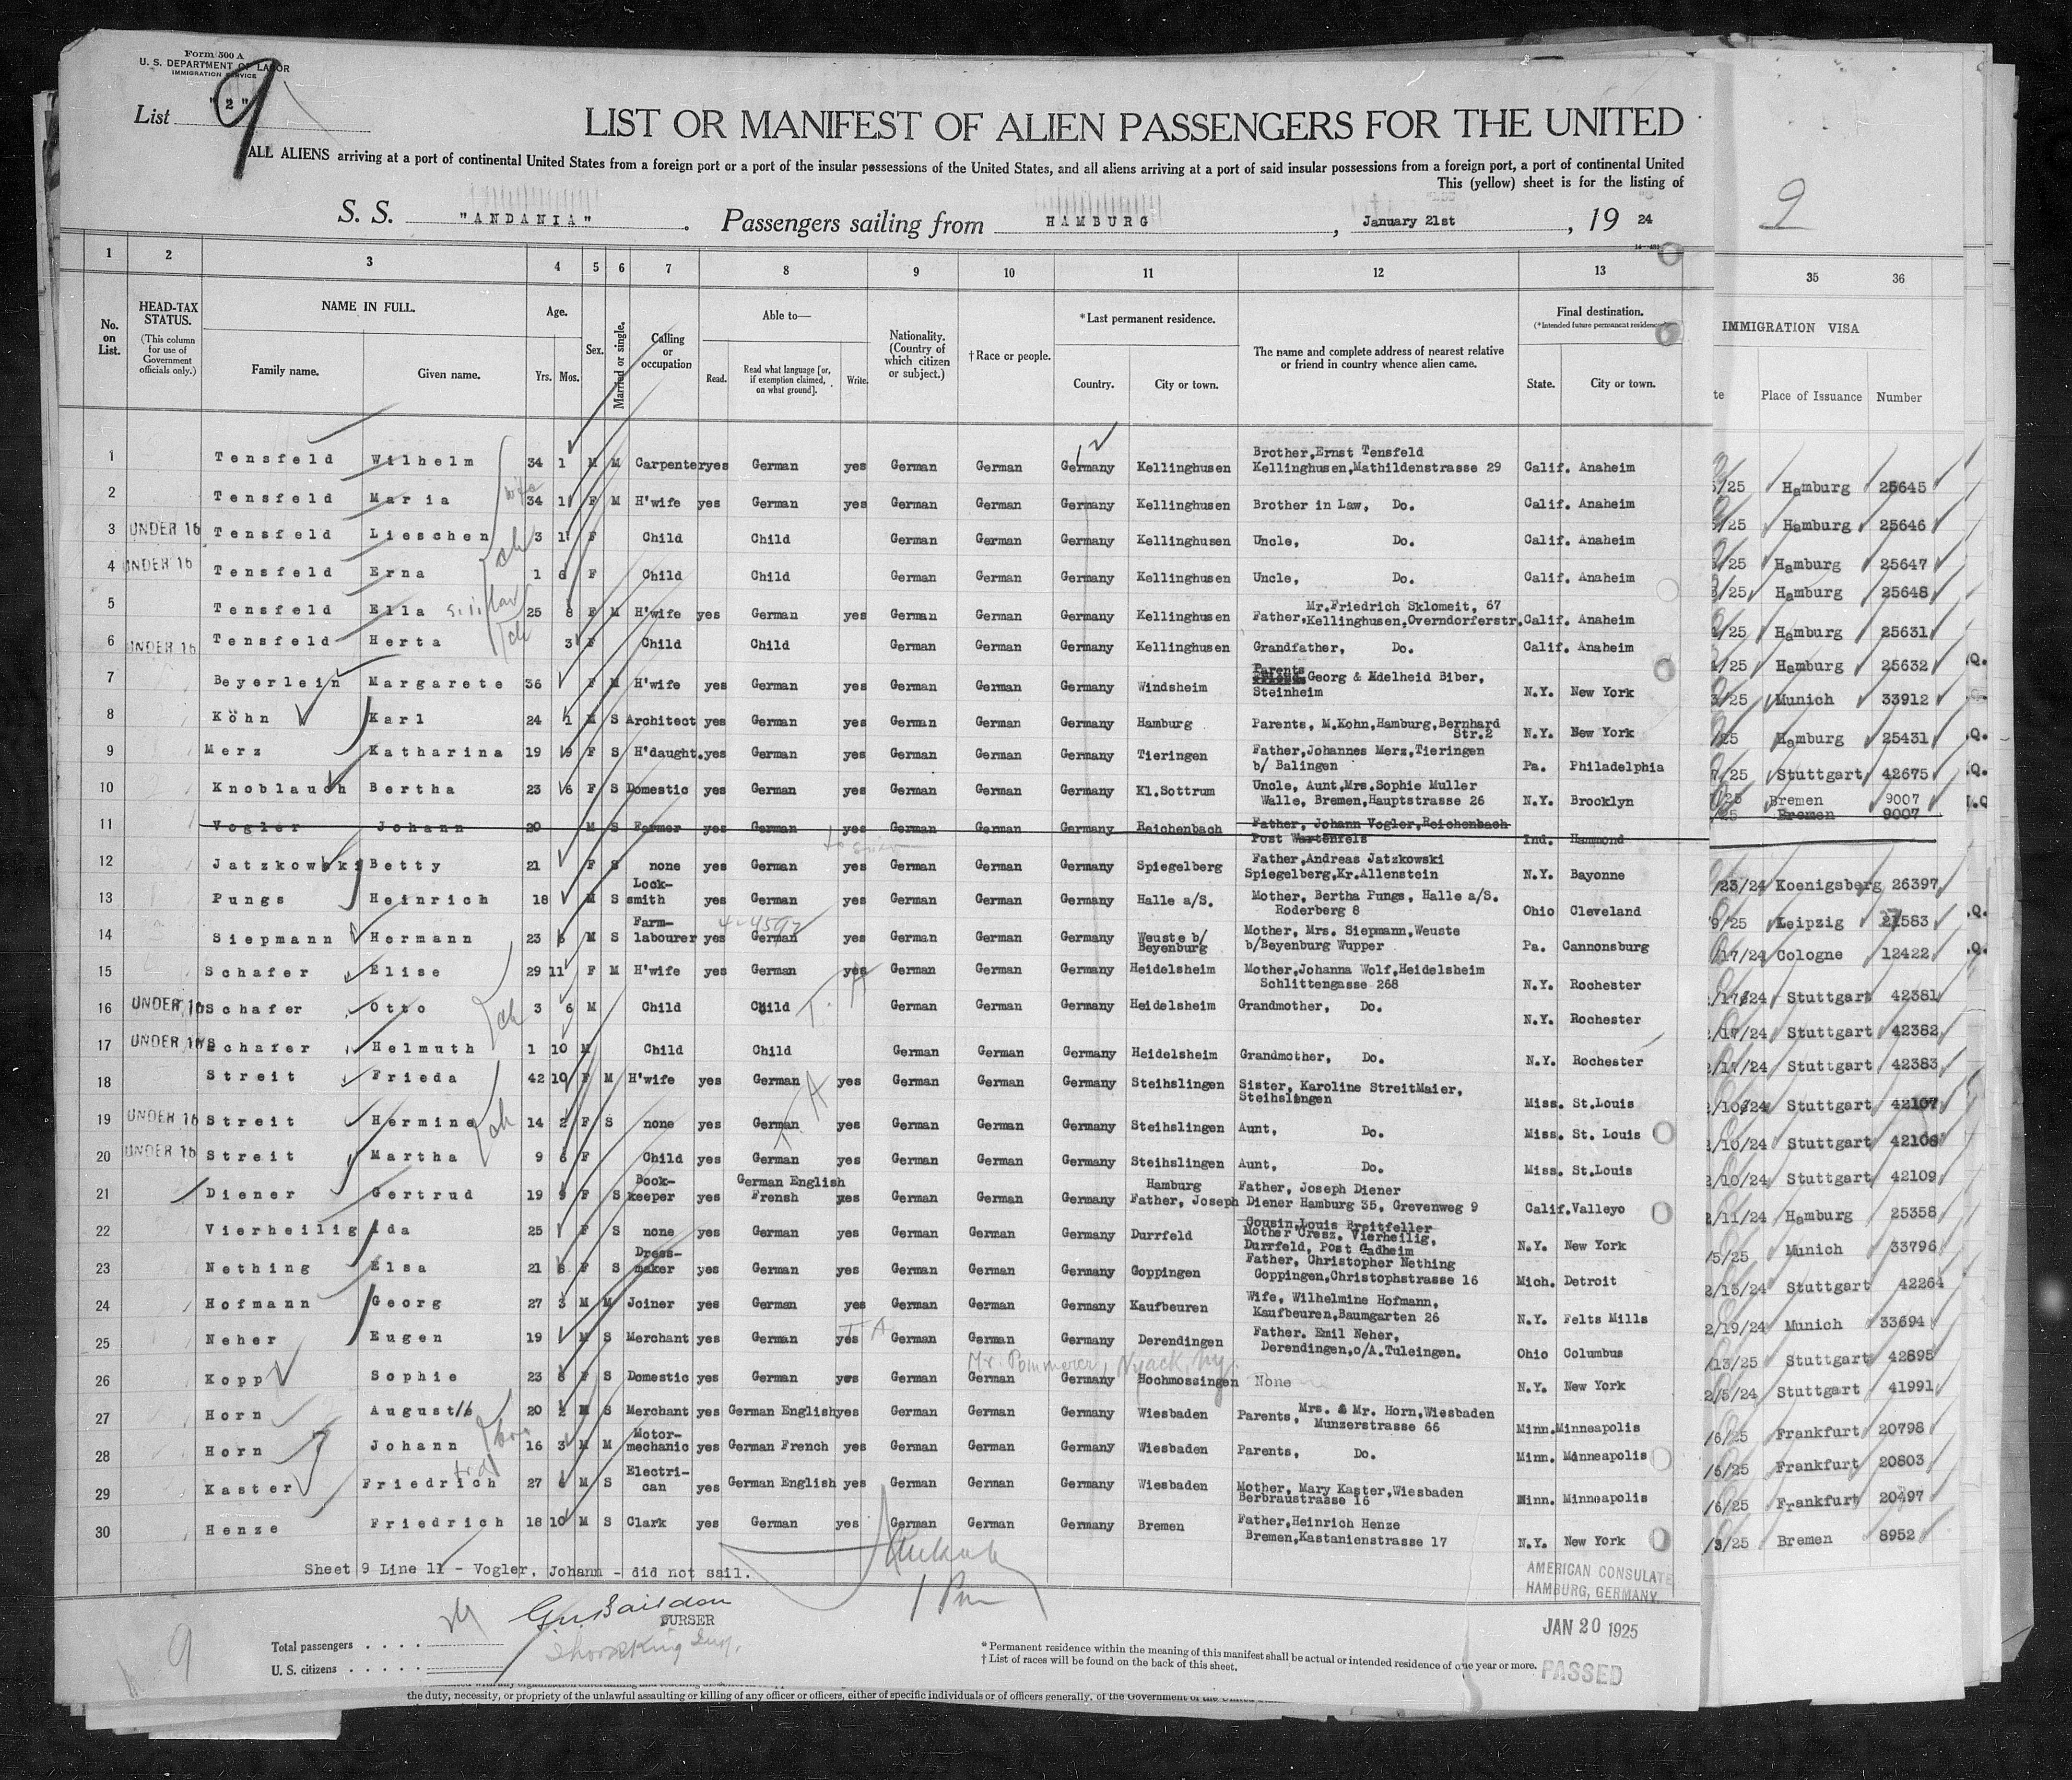 Form 500 A
U. S. DEPARTMENT OF LABOR
IMMIGRATION SERVICE
List "2" 9
LIST OR MANIFEST OF ALIEN PASSENGERS FOR THE UNITED
ALL ALIENS arriving at a port of continental United States from a foreign port or a port of the insular possessions of the United States, and all aliens arriving at a port of said insular possessions from a foreign port, a port of continental United
This (yellow) sheet is for the listing of
S. S. "ANDANIA". Passengers sailing from HAMBURG, January 21st, 19 24
9
1 2 3 4 5 6 7 8 9 10 11 12 13 35 36
No. on List. HEAD-TAX STATUS. (This column for use of Government officials only.) NAME IN FULL. Family name. Given name. Age. Yrs. Mos. Sex. Married or single. Calling or occupation Able to— Read. Read what language [or, if exemption claimed, on what ground]. Write. Nationality. (Country of which citizen or subject.) † Race or people. *Last permanent residence. Country. City or town. The name and complete address of nearest relative or friend in country whence alien came. Final destination. (*Intended future permanent residence) State. City or town. IMMIGRATION VISA te Place of Issuance Number
1 Tensfeld Wilhelm 34 1 M M Carpenter yes German yes German German Germany Kellinghusen Brother, Ernst Tensfeld Kellinghusen, Mathildenstrasse 29 Calif. Anaheim /25 Hamburg 25645
2 Tensfeld Maria wife 34 1 F M H'wife yes German yes German German Germany Kellinghusen Brother in Law, Do. Calif. Anaheim /25 Hamburg 25646
3 UNDER 16 Tensfeld Lieschen ch 3 1 F Child Child German German Germany Kellinghusen Uncle, Do. Calif. Anaheim /25 Hamburg 25647
4 UNDER 16 Tensfeld Erna 1 6 F Child Child German German Germany Kellinghusen Uncle, Do. Calif. Anaheim /25 Hamburg 25648
5 Tensfeld Ella 25 8 F M H'wife yes German yes German German Germany Kellinghusen Father, Mr.Friedrich Sklomeit, 67 Kellinghusen, Overndorferstr. Calif. Anaheim /25 Hamburg 25631
6 UNDER 16 Tensfeld Herta ch 3 F Child Child German German Germany Kellinghusen Grandfather, Do. Calif. Anaheim /25 Hamburg 25632
7 Beyerlein Margarete 36 F M H'wife yes German yes German German Germany Windsheim Parents Georg & Adelheid Biber, Steinheim N.Y. New York /25 Munich 33912
8 Köhn Karl 24 1 M S Architect yes German yes German German Germany Hamburg Parents, M.Kohn, Hamburg, Bernhard Str.2 N.Y. New York /25 Hamburg 25431
9 Merz Katharina 19 9 F S H'daught. yes German yes German German Germany Tieringen Father, Johannes Merz, Tieringen b/ Balingen Pa. Philadelphia /25 Stuttgart 42675
10 Knoblauch Bertha 23 6 F S Domestic yes German yes German German Germany Kl.Sottrum Uncle, Aunt, Mrs.Sophie Muller Walle, Bremen, Hauptstrasse 26 N.Y. Brooklyn /25 Bremen 9007
11 Vogler Johann 20 M S Farmer yes German yes German German Germany Reichenbach Father, Johann Vogler, Reichenbach Post Wartenfels Ind. Hammond 25 Bremen 9007
12 Jatzkowski Betty 21 F S none yes German yes German German Germany Spiegelberg Father, Andreas Jatzkowski Spiegelberg, Kr.Allenstein N.Y. Bayonne /23/24 Koenigsberg 26397
13 Pungs Heinrich 18 M S Lock-smith yes German yes German German Germany Halle a/S. Mother, Bertha Pungs, Halle a/S. Roderberg 8 Ohio Cleveland 9/25 Leipzig 583
14 Siepmann Hermann 23 6 M S Farm-labourer yes German yes German German Germany Weuste b/ Beyenburg Mother, Mrs. Siepmann, Weuste b/Beyenburg Wupper Pa. Cannonsburg /17/24 Cologne 12422
15 Schafer Elise 29 11 F M H'wife yes German yes German German Germany Heidelsheim Mother, Johanna Wolf, Heidelsheim Schlittengasse 268 N.Y. Rochester /17/24 Stuttgart 42381
16 UNDER 16 Schafer Otto ch 3 6 M Child Child German German Germany Heidelsheim Grandmother, Do. N.Y. Rochester /17/24 Stuttgart 42382
17 UNDER 16 Schafer Helmuth 1 10 M Child Child German German Germany Heidelsheim Grandmother, Do. N.Y. Rochester /17/24 Stuttgart 42383
18 Streit Frieda 42 10 F M H'wife yes German yes German German Germany Steihslingen Sister, Karoline StreitMaier, Steihslingen Miss. St.Louis /10/24 Stuttgart 42107
19 UNDER 16 Streit Hermine ch 14 2 F S none yes German yes German German Germany Steihslingen Aunt, Do. Miss. St. Louis /10/24 Stuttgart 42108
20 UNDER 16 Streit Martha 9 6 F Child yes German yes German German Germany Steihslingen Aunt, Do. Miss. St.Louis 2/10/24 Stuttgart 42109
21 Diener Gertrud 19 9 F S Book-keeper yes German English Frensh yes German German Germany Hamburg Father, Joseph Diener Father, Joseph Diener Hamburg 35, Grevenweg 9 Calif. Valleyo 2/11/24 Hamburg 25358
22 Vierheilig Ida 25 F S none yes German yes German German Germany Durrfeld Cousin Louis Breitfeller Mother Cresz. Vierheilig, Durrfeld, Post Gadheim N.Y. New York /5/25 Munich 33796
23 Nething Elsa 21 6 F S Dress-maker yes German yes German German Germany Goppingen Father, Christopher Nething Goppingen, Christophstrasse 16 Mich. Detroit 2/15/24 Stuttgart 42264
24 Hofmann Georg 27 3 M M Joiner yes German yes German German Germany Kaufbeuren Wife, Wilhelmine Hofmann, Kaufbeuren, Baumgarten 26 N.Y. Felts Mills 2/19/24 Munich 33694
25 Neher Eugen 19 M S Merchant yes German yes German German Germany Derendingen Father. Emil Neher, Derendingen, o/A.Tuleingen. Ohio Columbus /13/25 Stuttgart 42895
Mr. Pommerer, Nyack, Ny.
26 Kopp Sophie 23 8 F S Domestic yes German yes German German Germany Hochmossingen None N.Y. New York 2/5/24 Stuttgart 41991
27 Horn August 20 2 M S Merchant yes German English yes German German Germany Wiesbaden Parents, Mrs. & Mr. Horn, Wiesbaden Munzerstrasse 66 Minn. Minneapolis /6/25 Frankfurt 20798
28 Horn Johann 16 3 M M Motor-mechanic yes German French yes German German Germany Wiesbaden Parents, Do. Minn. Minneapolis /6/25 Frankfurt 20803
29 Kaster Friedrich 27 6 M S Electri-can yes German English yes German German Germany Wiesbaden Mother, Mary Kaster, Wiesbaden Berbraustrasse 16 Minn. Minneapolis /6/25 Frankfurt 20497
30 Henze Friedrich 18 10 M S Clark yes German yes German German Germany Bremen Father, Heinrich Henze Bremen, Kastanienstrasse 17 N.Y. New York /3/25 Bremen 8952
Sheet 9 Line 11 - Vogler, Johann - did not sail.
AMERICAN CONSULATE
HAMBURG, GERMANY
1 Pm
PURSER
JAN 20 1925
PASSED
Total passengers . . . .
U. S. citizens . . . . .
9
* Permanent residence within the meaning of this manifest shall be actual or intended residence of one year or more.
† List of races will be found on the back of this sheet.
the duty, necessity, or propriety of the unlawful assaulting or killing of any officer or officers, either of specific individuals or of officers generally, of the Government of the United